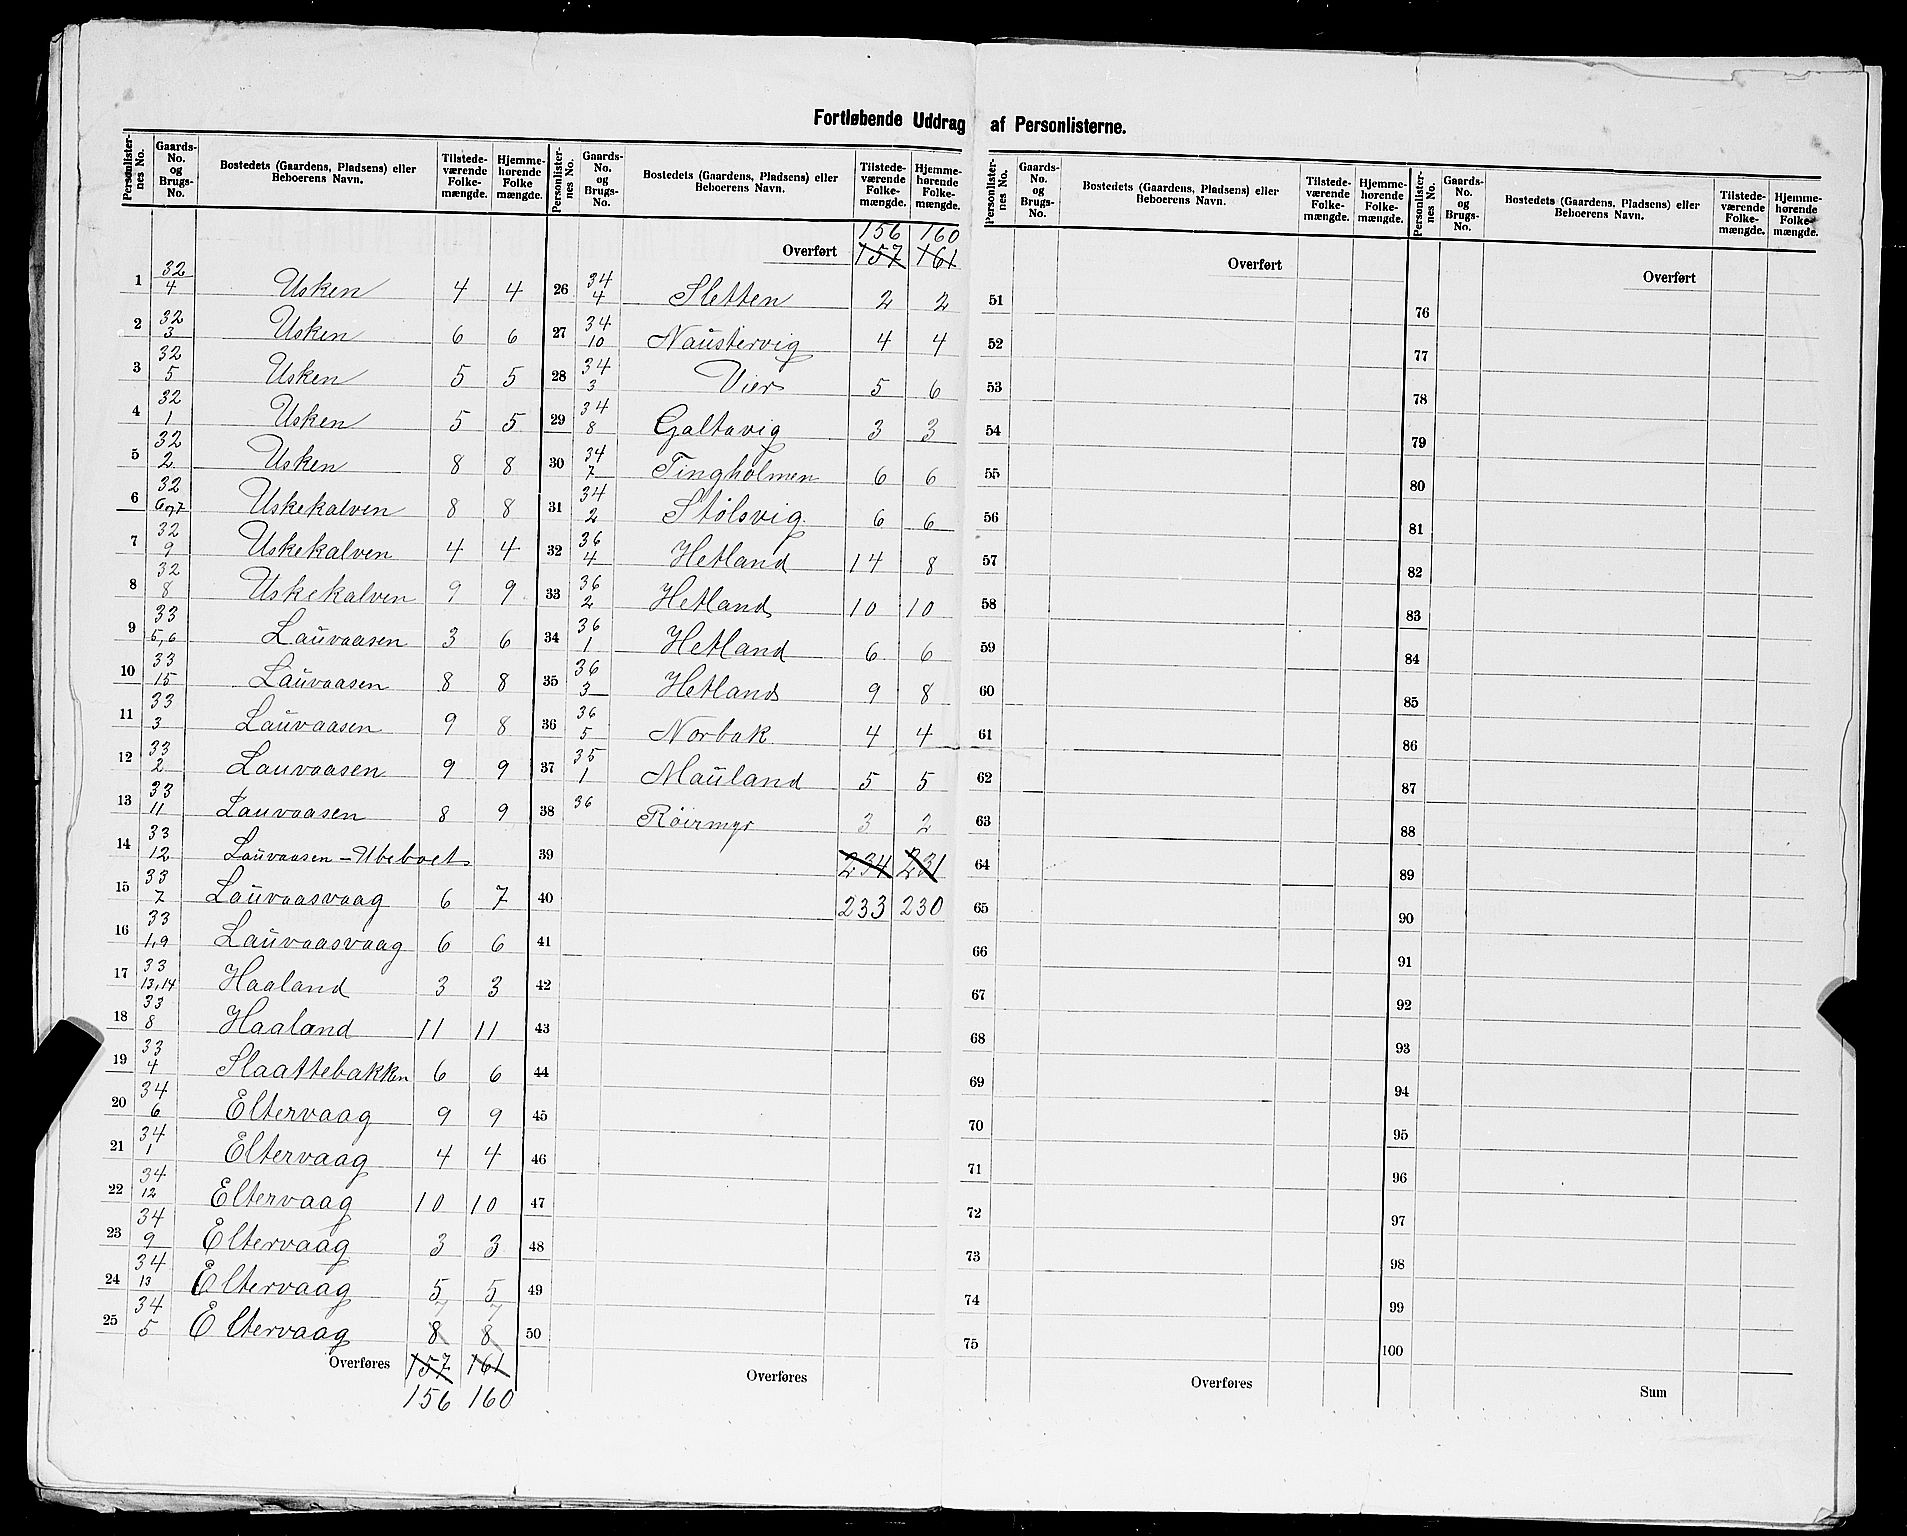 Fortløbende Uddrag af Personlisterne.
Personlisternes No. | Gaards-No. og Brugs-No. | Bostedets (Gaardens, Pladsens) eller Beboerens Navn. | Tilstedeværende Folkemængde. | Hjemmehørende Folkemængde.
1 32/4 Usken 4 4
2 32/3 Usken 6 6
3 32/5 Usken 5 5
4 32/1 Usken 5 5
5 32/2 Usken 8 8
6 32/6og7 Uskekalven 8 8
7 32/9 Uskekalven 4 4
8 32/8 Uskekalven 9 9
9 33/5,6 Lauvaasen 3 6
10 33/15 Lauvaasen 8 8
11 33/3 Lauvaasen 9 8
12 33/2 Lauvaasen 9 9
13 33/11 Lauvaasen 8 9
14 33/12 Lauvaasen - Ubeboet
15 33/7 Lauvaasvaag 6 7
16 33/1,9 Lauvaasvaag 6 6
17 33/13,14 Haaland 3 3
18 33/8 Haaland 11 11
19 33/4 Slaattebakken 6 6
20 34/6 Eltervaag 9 9
21 34/1 Eltervaag 4 4
22 34/12 Eltervaag 10 10
23 34/9 Eltervaag 3 3
24 34/13 Eltervaag 5 5
7 7
25 34/5 Eltervaag 8 8
Overføres 157 161
156 160
Personlisternes No. | Gaards-No. og Brugs-No. | Bostedets (Gaardens, Pladsens) eller Beboerens Navn. | Tilstedeværende Folkemængde. | Hjemmehørende Folkemængde.
156 160
Overført 157 161
26 34/4 Sletten 2 2
27 34/10 Naustervig 4 4
28 34/3 Vier 5 6
29 34/8 Galtavig 3 3
30 34/7 Tingholmen 6 6
31 34/2 Stølsvig 6 6
32 36/4 Hetland 14 8
33 36/2 Hetland 10 10
34 36/1 Hetland 6 6
35 36/3 Hetland 9 8
36 36/5 Norbak 4 4
37 35/1 Mauland 5 5
38 36 Røirmyr 3 2
39 234 231
40 233 230
41
42
43
44
45
46
47
48
49
50
Overføres
Personlisternes No. | Gaards-No. og Brugs-No. | Bostedets (Gaardens, Pladsens) eller Beboerens Navn. | Tilstedeværende Folkemængde. | Hjemmehørende Folkemængde.
Overført
51
52
53
54
55
56
57
58
59
60
61
62
63
64
65
66
67
68
69
70
71
72
73
74
75
Overføres
Personlisternes No. | Gaards-No. og Brugs-No. | Bostedets (Gaardens, Pladsens) eller Beboerens Navn. | Tilstedeværende Folkemængde. | Hjemmehørende Folkemængde.
Overført
76
77
78
79
80
81
82
83
84
85
86
87
88
89
90
91
92
93
94
95
96
97
98
99
100
Sum